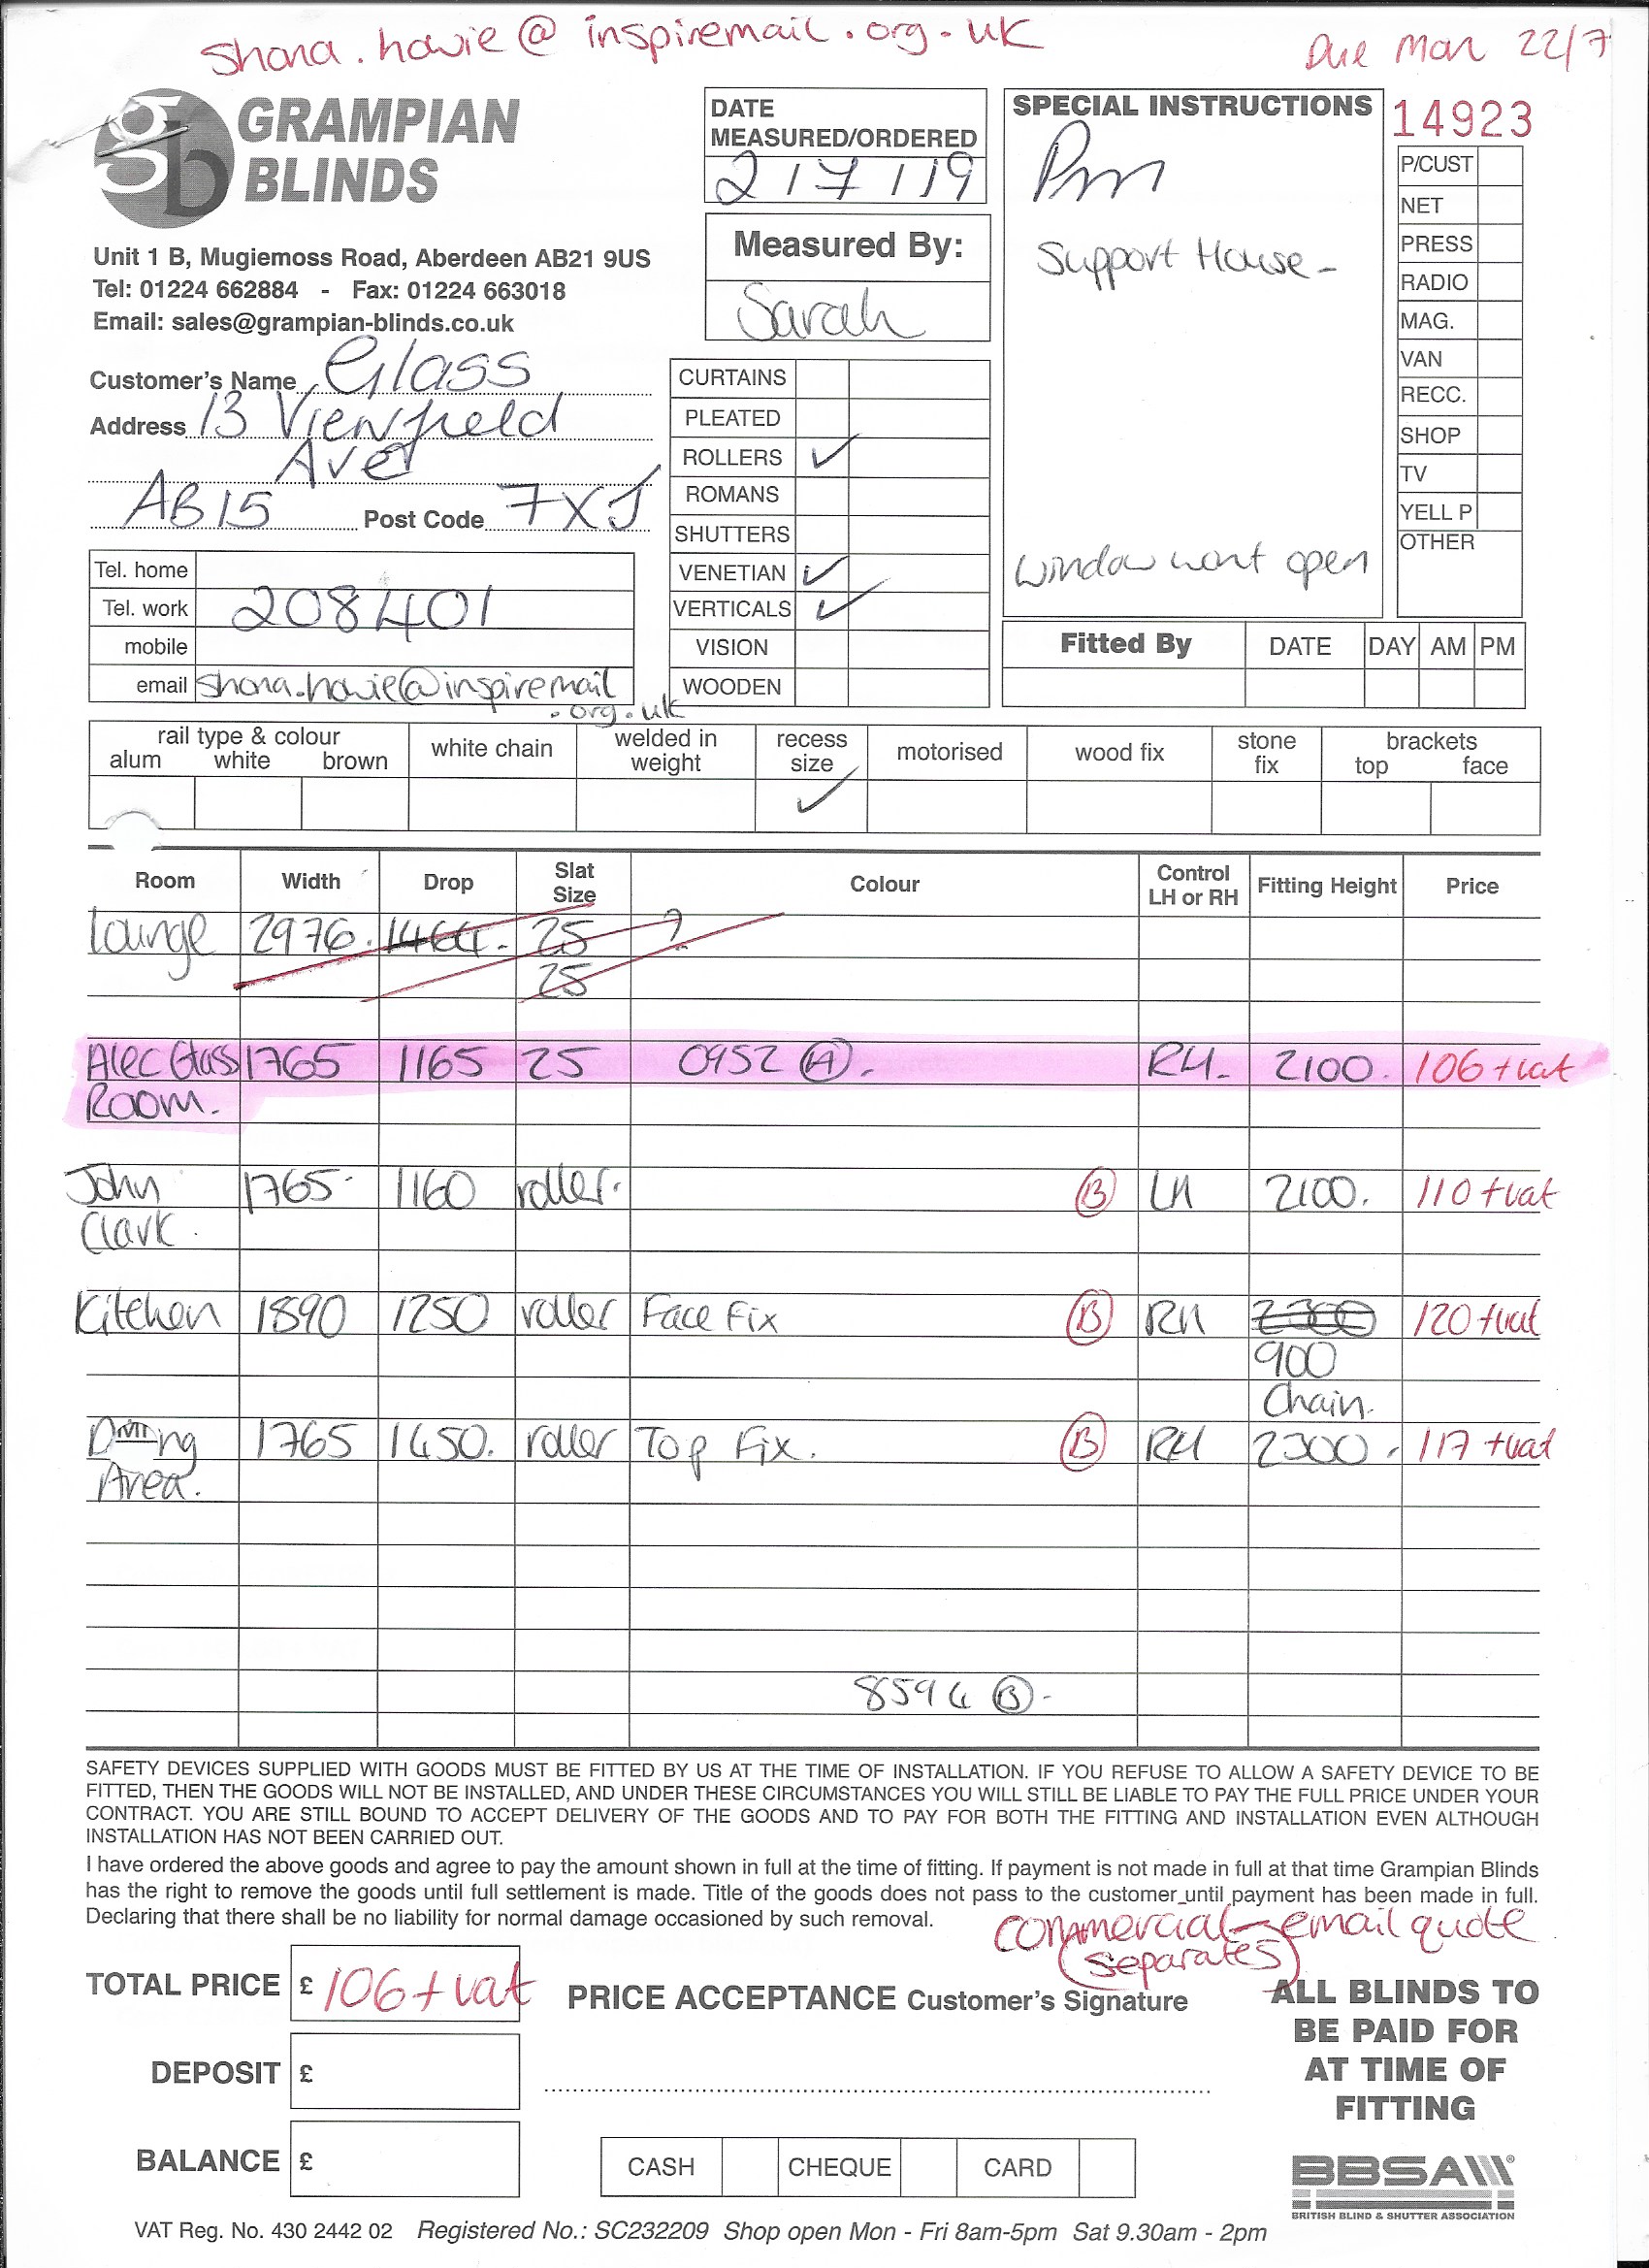 shona.howie@inspiremail.org.uk
Due Mon 22/7
gb GRAMPIAN
BLINDS
Unit 1 B, Mugiemoss Road, Aberdeen AB21 9US
Tel: 01224 662884 - Fax: 01224 663018
Email: sales@grampian-blinds.co.uk
DATE
MEASURED/ORDERED
2/7/19
Measured By:
Sarah
SPECIAL INSTRUCTIONS
Pm
Support House -
window wont open
14923
P/CUST
NET
PRESS
RADIO
MAG.
VAN
RECC.
SHOP
TV
YELL P
OTHER
Customer's Name Glass
Address 13 Viewfield
Ave
AB15 Post Code 7XJ
Tel. home
Tel. work 208401
mobile
email shona.howie@inspiremail
.org.uk
CURTAINS
PLEATED
ROLLERS ✓
ROMANS
SHUTTERS
VENETIAN ✓
VERTICALS ✓
VISION
WOODEN
Fitted By DATE DAY AM PM
rail type & colour
alum white brown
white chain
welded in
weight
recess
size
✓
motorised
wood fix
stone
fix
brackets
top face
Room Width Drop Slat Size Colour Control LH or RH Fitting Height Price
Lounge 2976. 1464. 25 ?
25
Alec Glass 1765 1165 25 0952 (A). RH. 2100. 106 + vat
Room.
John 1765. 1160 roller. (B) LH 2100. 110 + vat
Clark.
Kitchen 1890 1250 roller Face Fix (B) RH 2300 120 + vat
900
Chain.
Dining 1765 1450. roller Top Fix. (B) RH 2300. 117 + vat
Area.
8594 (B).
SAFETY DEVICES SUPPLIED WITH GOODS MUST BE FITTED BY US AT THE TIME OF INSTALLATION. IF YOU REFUSE TO ALLOW A SAFETY DEVICE TO BE
FITTED, THEN THE GOODS WILL NOT BE INSTALLED, AND UNDER THESE CIRCUMSTANCES YOU WILL STILL BE LIABLE TO PAY THE FULL PRICE UNDER YOUR
CONTRACT. YOU ARE STILL BOUND TO ACCEPT DELIVERY OF THE GOODS AND TO PAY FOR BOTH THE FITTING AND INSTALLATION EVEN ALTHOUGH
INSTALLATION HAS NOT BEEN CARRIED OUT.
I have ordered the above goods and agree to pay the amount shown in full at the time of fitting. If payment is not made in full at that time Grampian Blinds
has the right to remove the goods until full settlement is made. Title of the goods does not pass to the customer until payment has been made in full.
Declaring that there shall be no liability for normal damage occasioned by such removal.
commercial - email quote
(separates)
TOTAL PRICE £ 106 + vat
PRICE ACCEPTANCE Customer's Signature
DEPOSIT £
BALANCE £
CASH CHEQUE CARD
ALL BLINDS TO
BE PAID FOR
AT TIME OF
FITTING
BBSA
BRITISH BLIND & SHUTTER ASSOCIATION
VAT Reg. No. 430 2442 02 Registered No.: SC232209 Shop open Mon - Fri 8am-5pm Sat 9.30am - 2pm